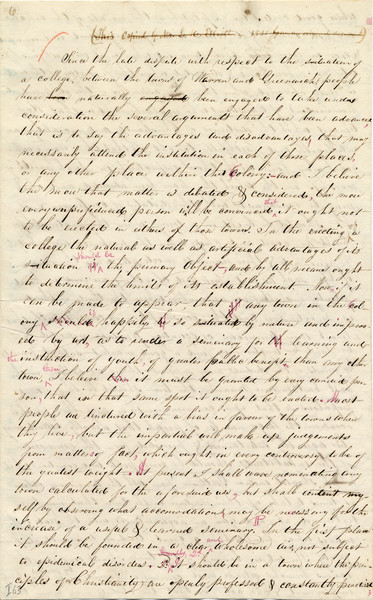 6
(This Copied by
Since the late dispute with respect to the situation of
a college, between the towns of Warren and Greenwich, people
have naturally been engaged to take under
consideration the several arguments that have been advanced
that is to say the advantages and disadvantages, that may
necessarily attend the institution in each of those places,
or any other place within this Colony: and I believe
the more that matter is debated & considered, the more
every unprejudiced person will be convinced that it ought not
to be erected in either of those towns. In the erecting a
college the natural as well as artificial advantages of its
situation should be the primary Object, and by all means ought
to determine the limits of its establishment. Now, if it
can be made to appear that if any town in the Col-
ony should is happily so situated by nature and improv-
ed by art, as to render a seminary for learning and
the instruction of youth, of greater public benefit, than any other
town, I believe it must be granted by every candid per-
son, that in that same spot it ought to be erected. Most
people are tinctured with a bias in favour of the towns where
they live, but the impartial will make up judgements
from matters of fact, which ought in every controversy to be of
the greatest weight. At present I shall wave nominating any
town calculated for the aforesaid use, but shall content my-
self by observing what accomodations may be necessary for the
increase of a useful & learned seminary. In the first place
it should be founded in a clear, wholesome air, not subject
to epidemical disorders. should be in a town where the prin-
ciples of Christianity are openly professed & constantly practised
163